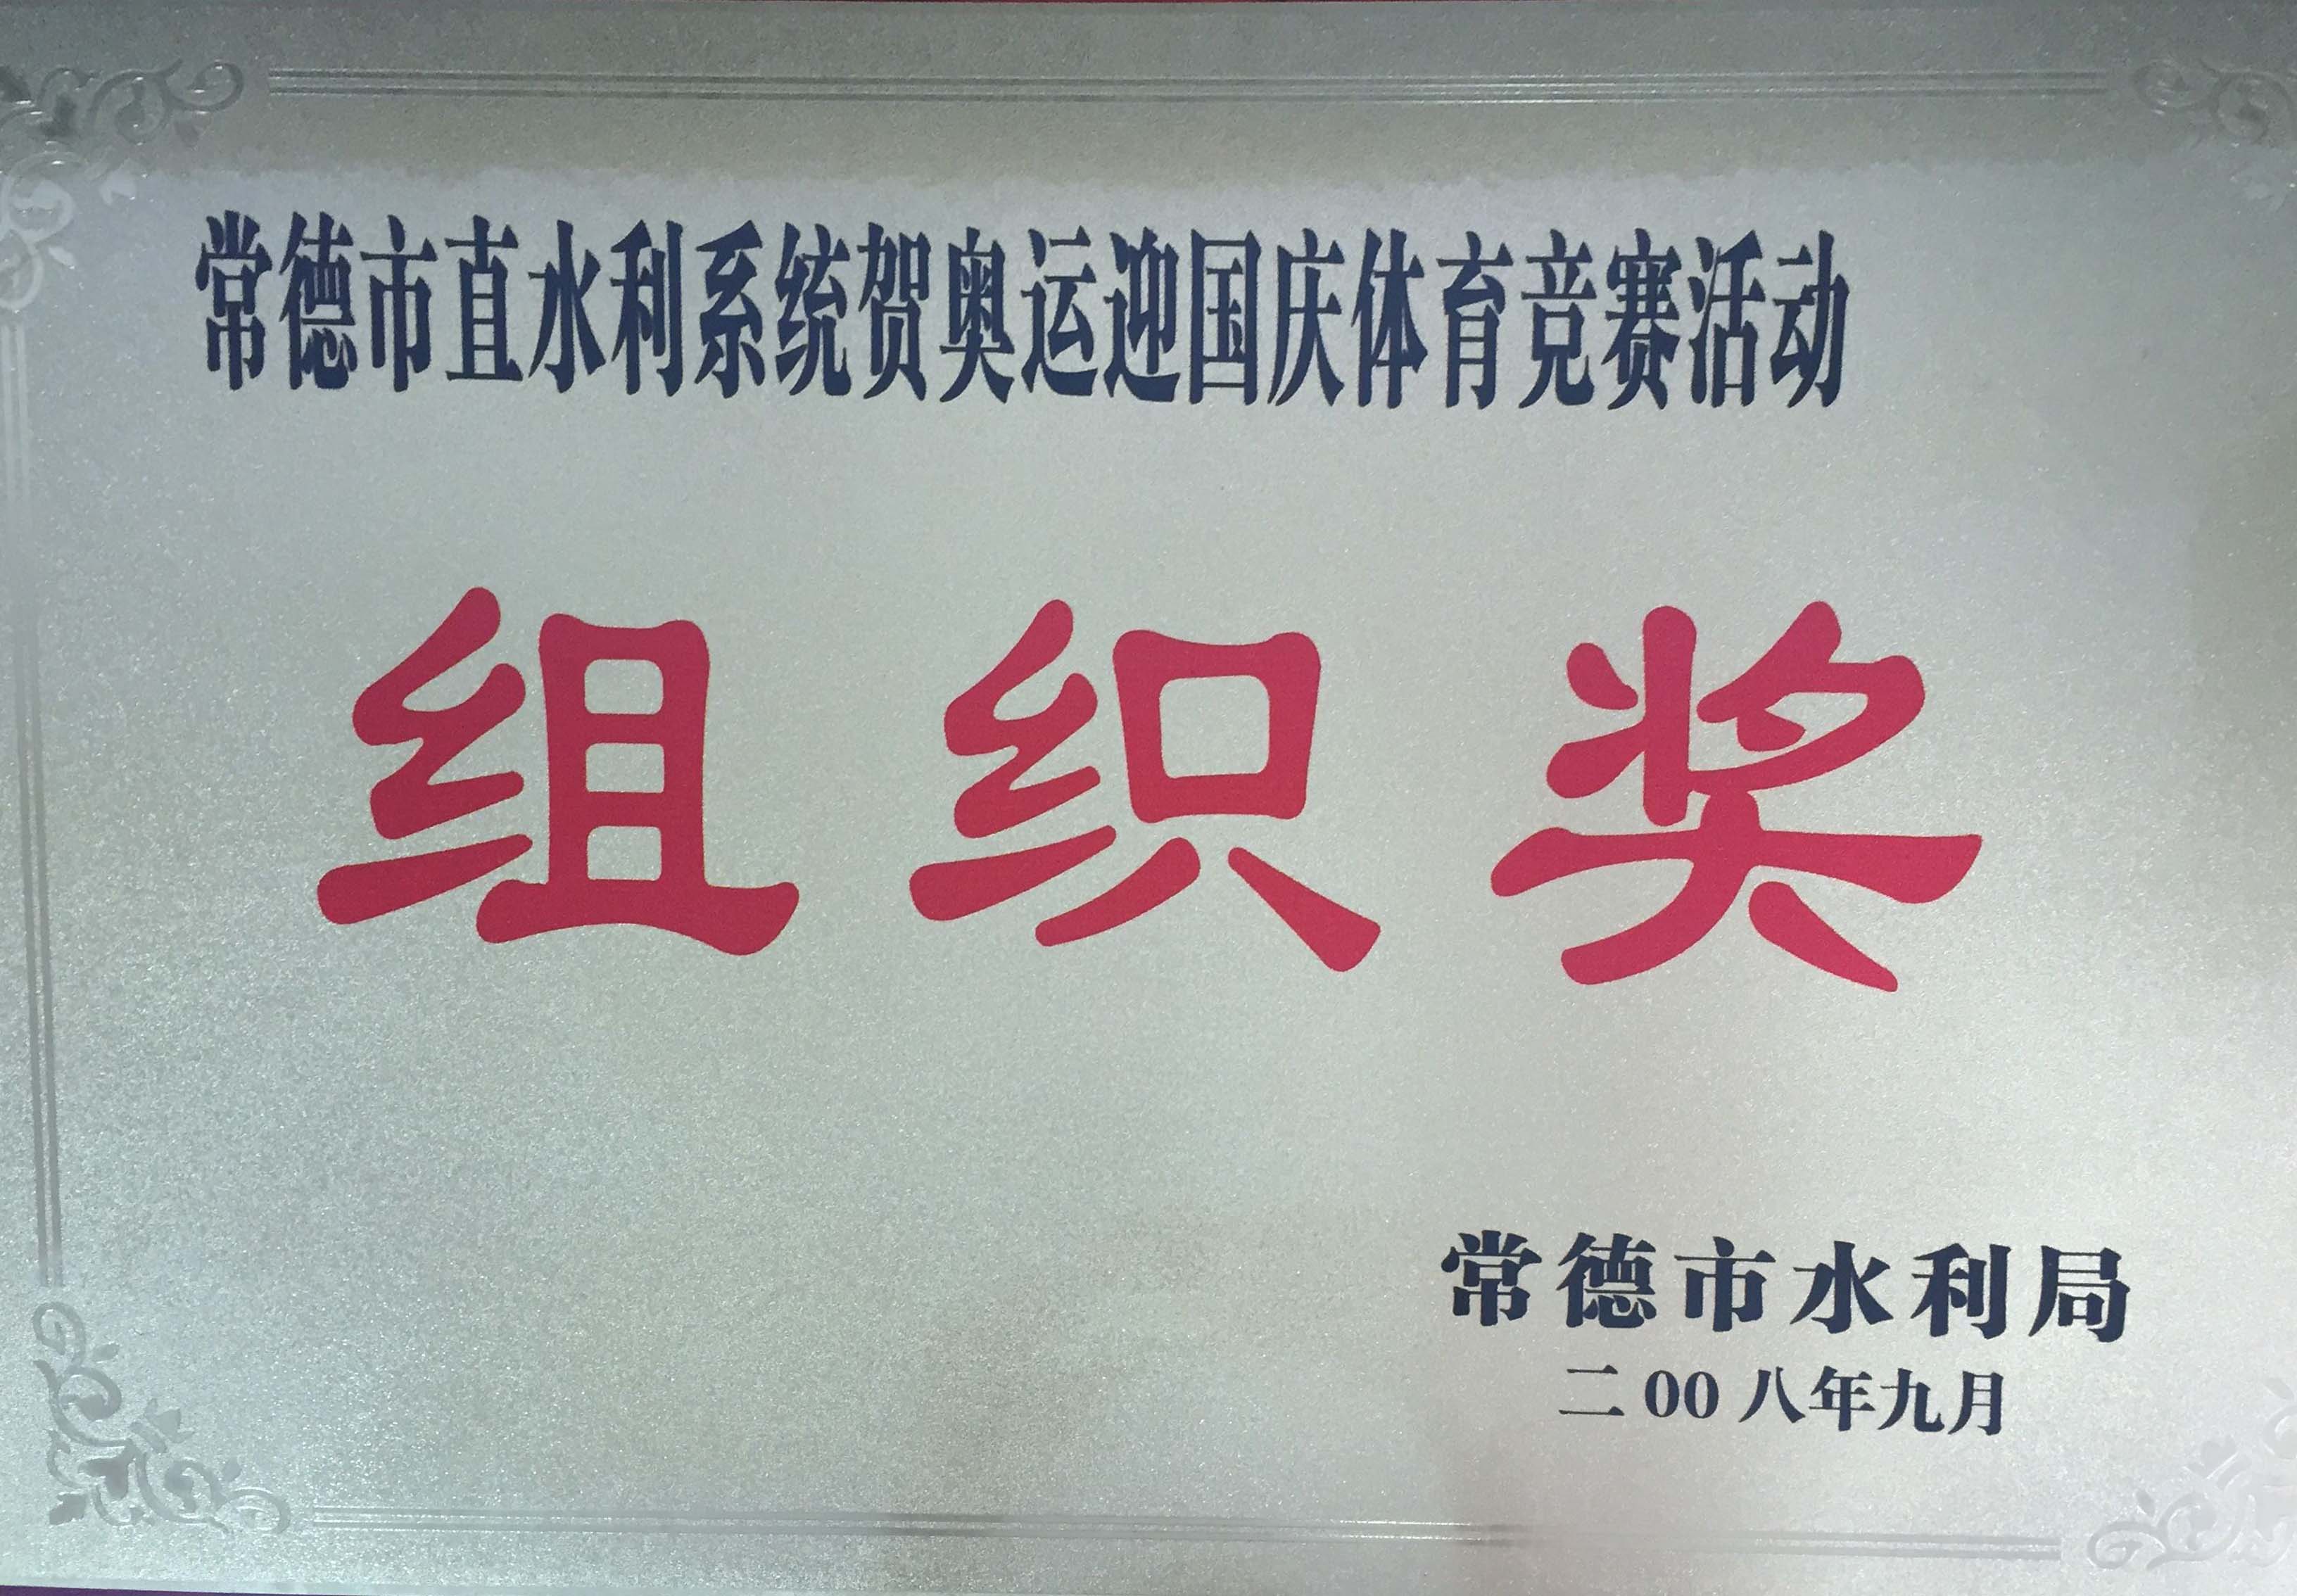 常德市直水利系统贺奥运迎国庆体育竞赛活动
组织奖
常德市水利局
二00八年九月